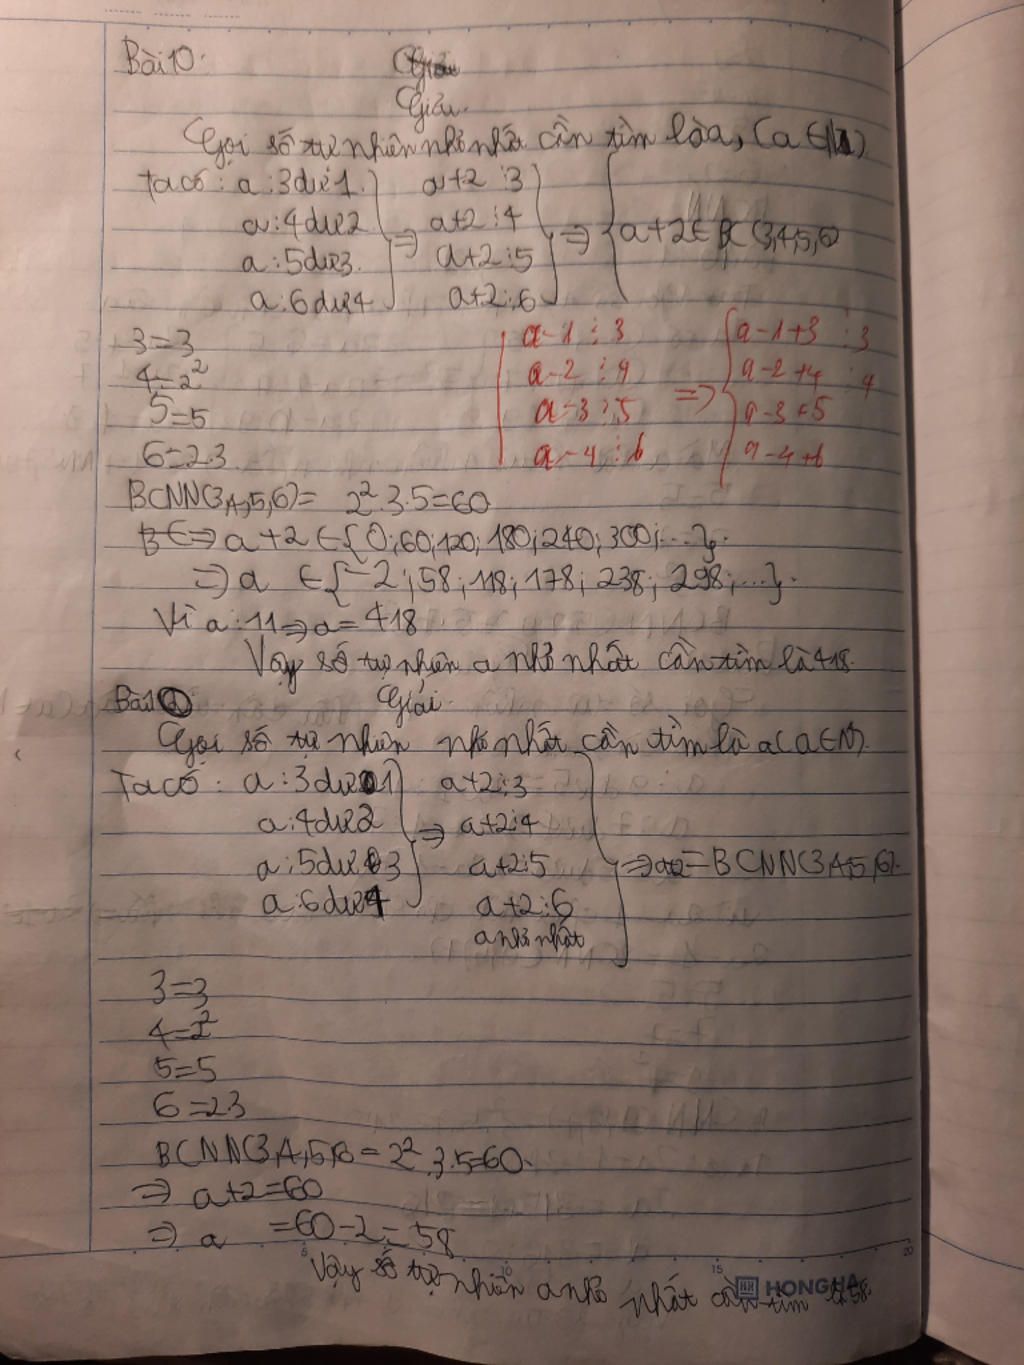 Bài 10:
Giải
Giải
Gọi số tự nhiên nhỏ nhất cần tìm là a, (a ∈ N)
Ta có: a : 3 dư 1 a+2 ⋮ 3
a : 4 dư 2 a+2 ⋮ 4
⇒ ⇒ a+2 ∈ BC(3,4,5,6)
a : 5 dư 3 a+2 ⋮ 5
a : 6 dư 4 a+2 ⋮ 6
3=3 a-1 ⋮ 3 a-1+3 ⋮ 3
4=2² a-2 ⋮ 4 a-2+4 ⋮ 4
5=5 a-3 ⋮ 5 ⇒ a-3+5
6=2.3 a-4 ⋮ 6 a-4+6
BCNN(3,4,5,6)= 2².3.5=60
⇒ a+2 ∈ {0;60;120;180;240;300;...}.
⇒ a ∈ {-2;58;118;178;238;298;...}.
Vì a ⋮ 11 ⇒ a = 418
Vậy số tự nhiên a nhỏ nhất cần tìm là 418.
Bài 1
Giải
Gọi số tự nhiên nhỏ nhất cần tìm là a (a ∈ N).
Ta có: a : 3 dư 1 a+2 ⋮ 3
a : 4 dư 2 ⇒ a+2 ⋮ 4
a : 5 dư 3 a+2 ⋮ 5 ⇒ a+2 = BCNN(3,4,5,6).
a : 6 dư 4 a+2 ⋮ 6
a nhỏ nhất
3=3
4=2²
5=5
6=2.3
BCNN(3,4,5,6) = 2².3.5=60.
⇒ a+2=60
⇒ a =60-2=58
Vậy số tự nhiên a nhỏ nhất cần tìm là 58.
5 10 15 20
HONG HA